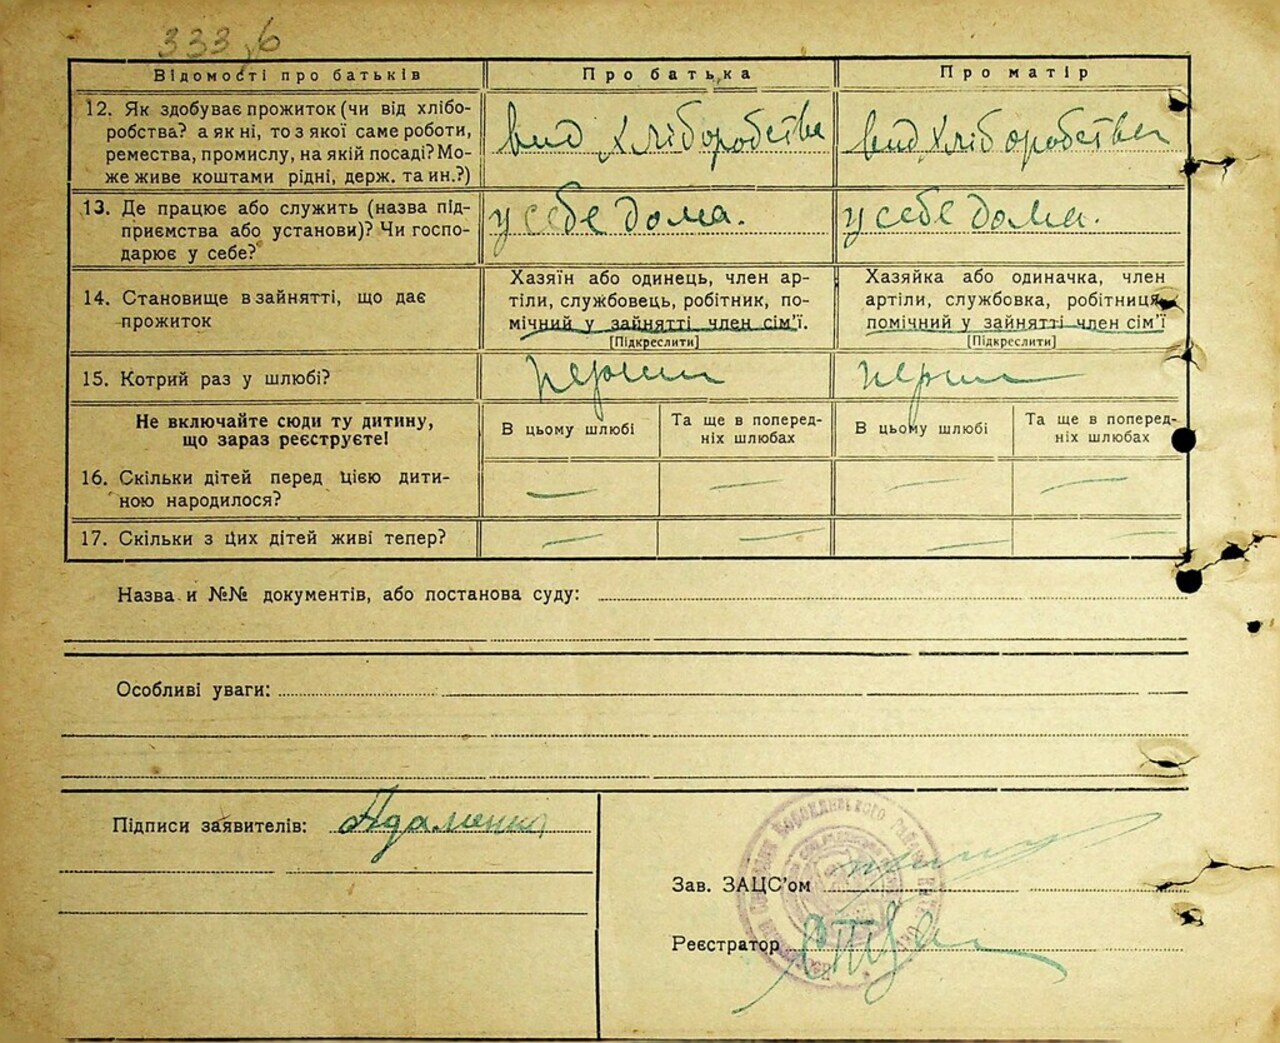 333
Відомості про батьків
Про батька
Про матір
12. Як здобуває прожиток (чи від хлібо-
робства? а як ні, то з якої саме роботи,
ремества, промислу, на якій посаді? Мо-
же живе коштами рідні, держ. та ин.?)
вид хліборобства
вид хліборобства
13. Де працює або служить (назва під-
приємства або установи)? Чи госпо-
дарює у себе?
у себе дома.
у себе дома.
14. Становище в зайнятті, що дає
прожиток
Хазяїн або одинець, член ар-
тілі, службовець, робітник, по-
мічний у зайнятті член сім'ї.
[Підкреслити]
Хазяйка або одиначка, член
артіли, службовка, робітниця,
помічний у зайнятті член сім'ї
[Підкреслити]
15. Котрий раз у шлюбі?
Не включайте сюди ту дитину,
що зараз реєструєте!
В цьому шлюбі
Та ще в поперед-
ніх шлюбах
В цьому шлюбі
Та ще в поперед-
ніх шлюбах
16. Скільки дітей перед цією дити-
ною народилося?
— — — —
17. Скільки з цих дітей живі тепер?
— — — —
Назва и №№ документів, або постанова суду:
Особливі уваги:
Підписи заявителів: Адаменко
Зав. ЗАЦС'ом
Реєстратор
Бородянського Район